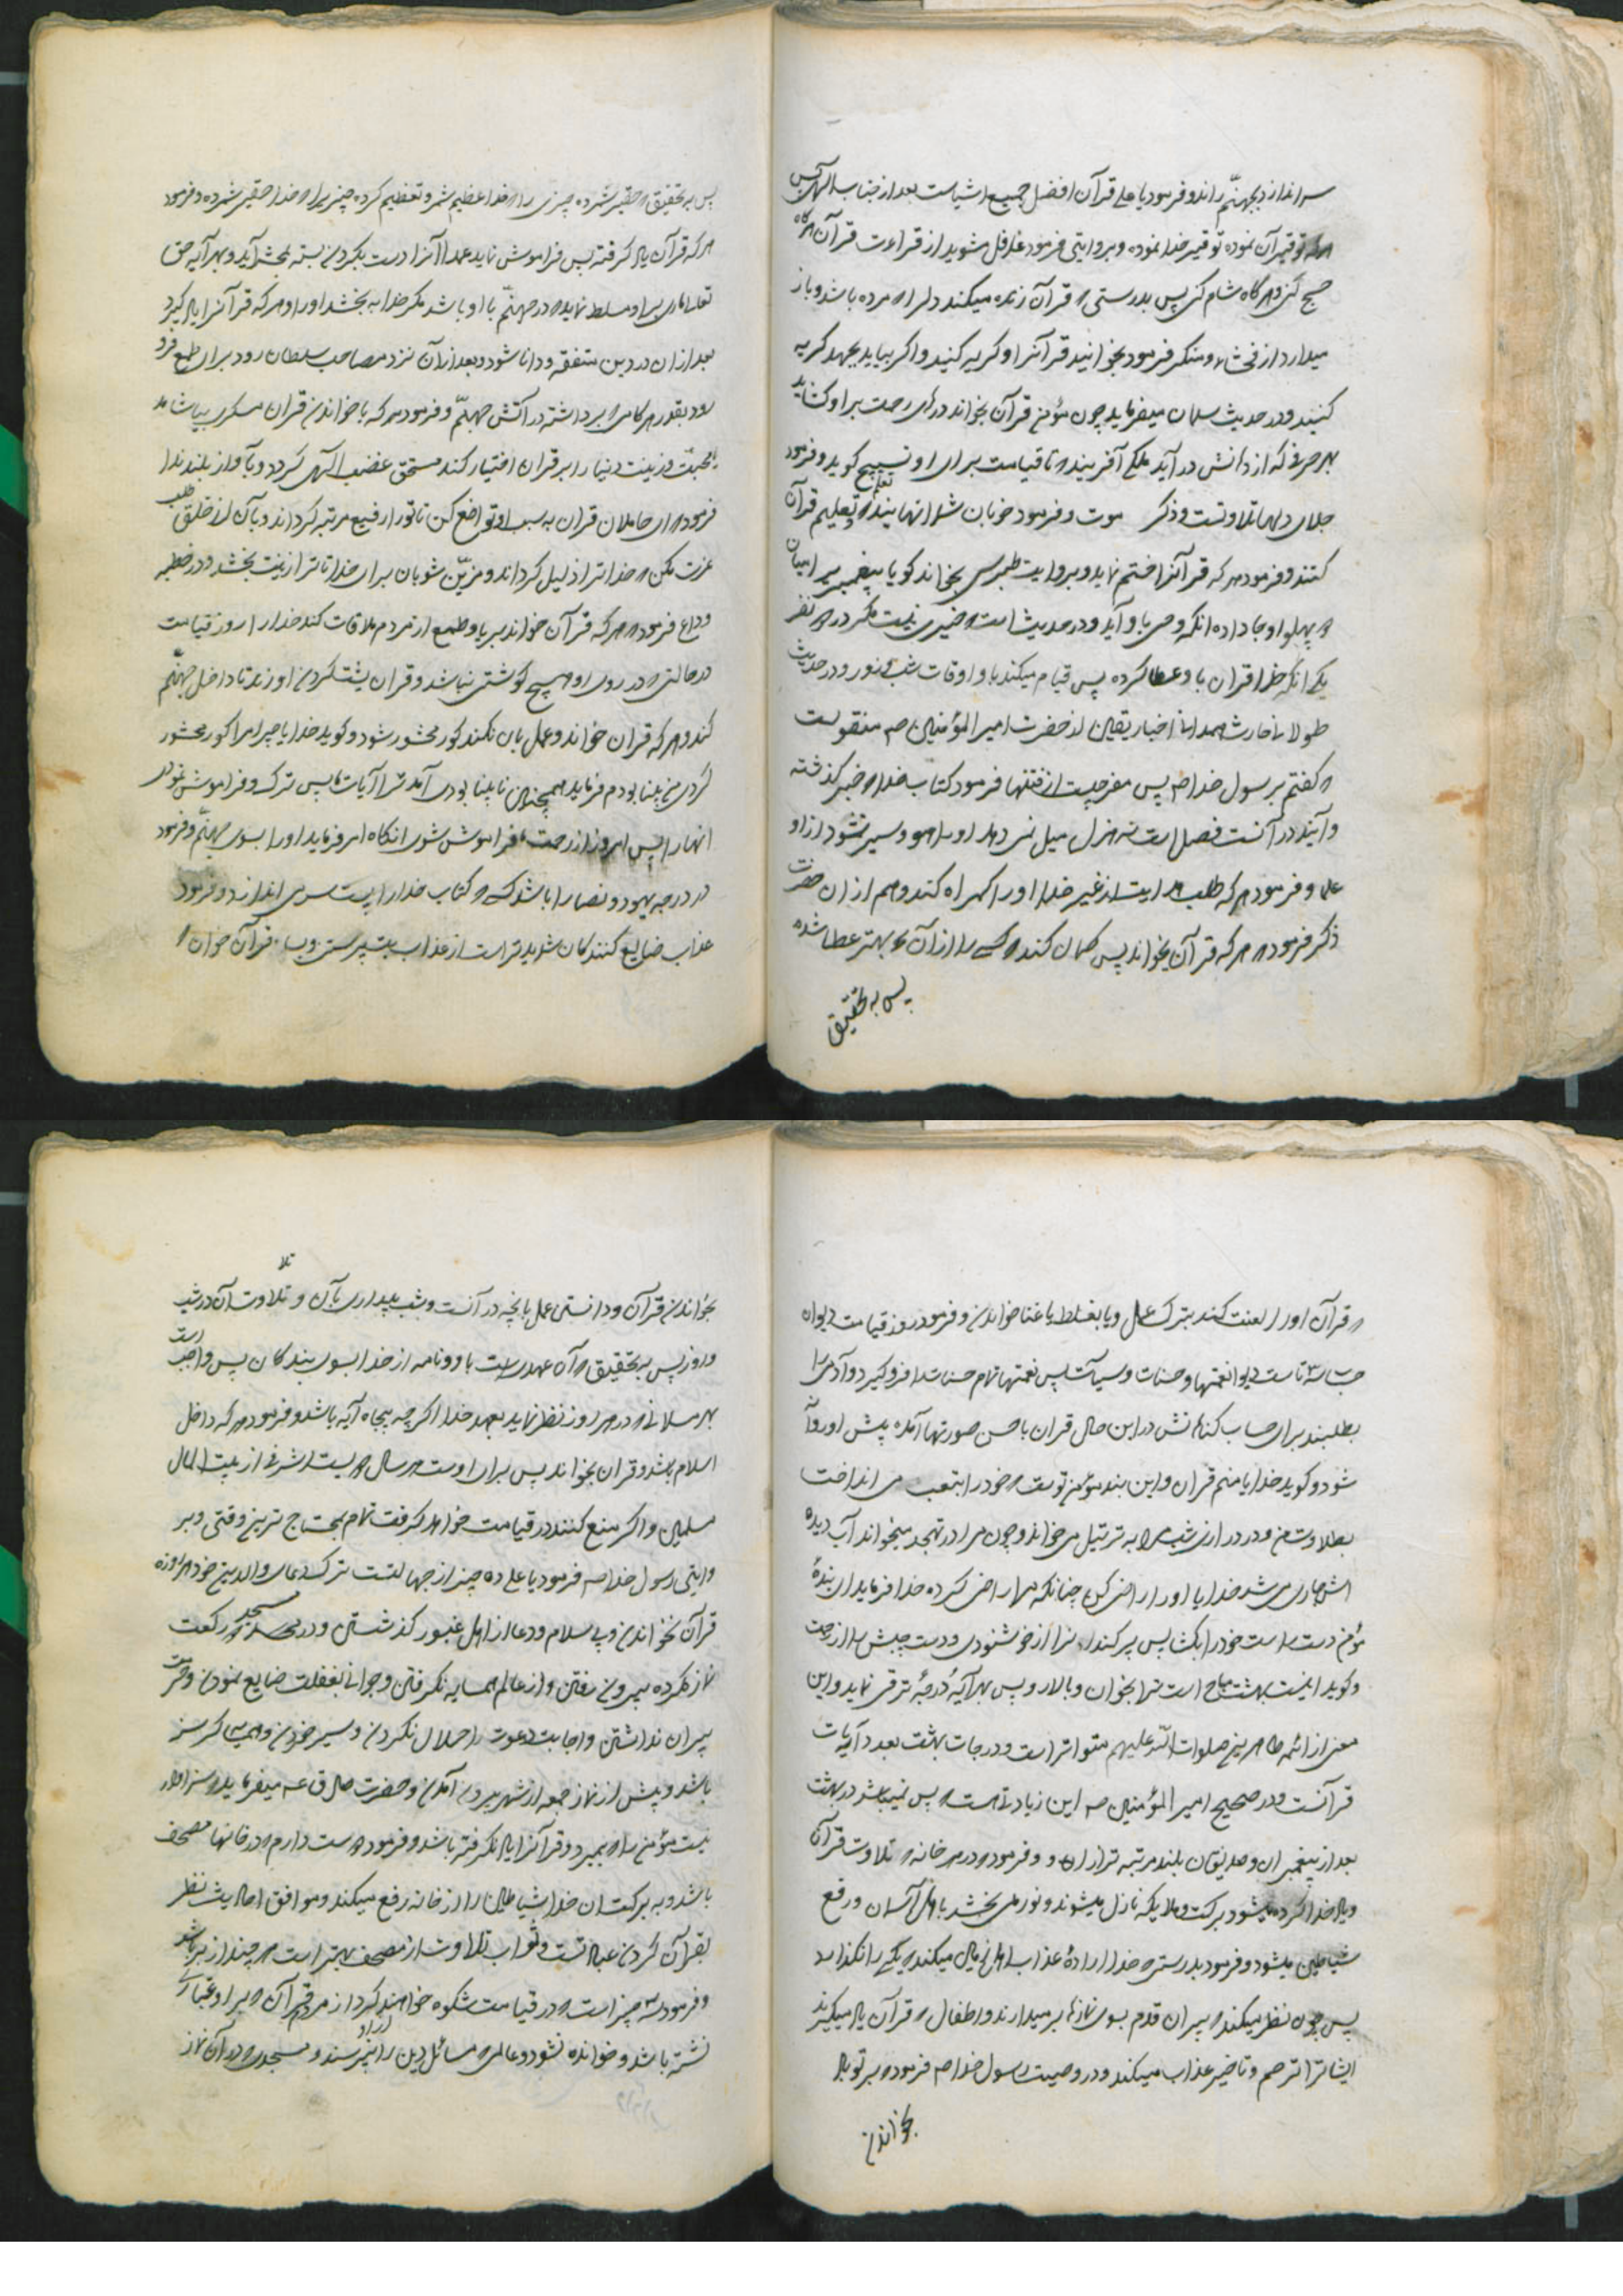 سر اندازد بجهنم راند و فرمود یا علی قرآن افضل جمیع اشیاست بعد از جناب الهی پس
هر که توقیر آن نموده توقیر خدا نموده و بروایتی فرمود غافل مشوید از قراءت قرآن هرگاه
صبح کنی و هرگاه شام کنی پس بدرستی که قرآن زنده میکند دلرا که مرده باشد و باز
میدارد از فحشاء و منکر فرمود بخوانید قرآنرا و گریه کنید و اگر نیاید بجهد گریه
کنید و در حدیث سلمان میفرماید چون مؤمن قرآن بخواند درهای رحمت بر او گشاید
بهر حرفی که از دهانش در آید ملکی آفریند که تا قیامت برای او تسبیح گوید و فرمود
جلای دلها تلاوتست و ذکر موت و فرمود خوبان شما انهایند که تعلم و تعلیم قرآن
کنند و فرمود هر که قرآنرا ختم نماید و بروایت طبرسی بخواند گویا پیغمبری را میان
دو پهلو او جا داده انکه وحی باو آید و در حدیث است که خیری نیست مگر در دو نفر
یکی انکه خدا قران باو عطا کرده پس قیام میکند باو اوقات شب و روز و در حدیث
طولانی حارث همدانی اخبار یقین از حضرت امیر المؤمنین ص منقولست
که گفتم برسول خدا ص پس مفر چیست از فتنها فرمود کتاب خدا که خبر گذشته
و آینده در آنست فصل است نه هزل میل نمی دهد او را هوی و سیر نمیشود از او
علما و فرمود هر که طلب هدایت از غیر خدا اورا گمراه کند و هم از ان حضرت
ذکر فرمود که هر که قرآن بخواند پس گمان کند که کسی را از آن بهتر عطا شده
پس به تحقیق
پس به تحقیق که حقیر شمرده چیزی را که خدا عظیم شمرد و تعظیم کرده چیزیرا که خدا حقیر شمرده و فرمود
هر که قرآن یاد گرفته پس فراموش نماید عمداً آنرا دست بگردن بسته بمحشر آید و بهر آیه حق
تعالی ماری بر او مسلط نماید که در جهنم با او باشد مگر خدا به بخشد اورا و هر که قرآنرا یاد گیرد
بعد از ان در دین متفقه و دانا شود و بعد از آن نزد مصاحب سلطان رود برای طمع فرو
رود بقدر هر گامی که برداشته در آتش جهنم و فرمود هر که با خواندن قران مسکری بیاشامد
یا محبت و زینت دنیا را بر قران اختیار کند مستحق غضب الهی گردد و بآواز بلند ندا
فرمود که ای حاملان قران به سبب او تواضع کن تا تورا رفیع مرتبه گرداند و بآن از خلق طلب
عزت مکن که خدا ترا ذلیل گرداند و مزین شو بان برای خدا تا ترا زینت بخشد و در خطبه
وداع فرمود که هر که قرآن خواند بریا و طمع از مردم ملاقات کند خدا را روز قیامت
در حالتی که در روی او هیچ گوشتی نباشد و قران پشت گردن او زند تا داخل جهنم
کند و هر که قران خواند و عمل بان نکند کور محشور شود و گوید خدایا چرا مرا کور محشور
کردی من بینا بودم فرماید همچنین نابینا بودی آمد ترا آیات ما پس ترک و فراموش نمودی
انهارا پس امروز از رحمت ما فراموش شوی انگاه امر فرماید اورا بسوی جهنم و فرمود
در درجه یهود و نصارا باشد کسی که کتاب خدا را پست سر می اندازد و فرمود
عذاب ضایع کنندگان شدیدتر است از عذاب بت پرستی و بسا قرآن خوان که
که قرآن اورا لعنت کند بترک عمل و یا بغلط یا غنا خواندن و فرمود روز قیامت دیوان
حساب سه تاست دیوان نعمتها و حسنات و سیآت پس نعمتها تمام حسنات را فرو گیرد و آدمی را
بطلبند برای حساب گناهانش در این حال قران باحسن صورتها آمده پیش او روانه
شود و گوید خدایا منم قران و این بنده مؤمن توست که خود را بتعب می انداخت
بتلاوت من و در درازی شب مرا به ترتیل می خواند و چون مرا در تهجد میخواند آب دیده
اش جاری می شد خدایا اورا راضی گردان چنانکه مرا راضی کرده خدا فرماید ای بنده
مؤمن دست راست خود را بگشا پس پر کند از خوشنودی و دست چپش را از رحمت
و گوید اینست بهشت مباح است ترا بخوان و بالا رو پس بهر آیه درجه ترقی نماید و این
معنی از ائمه طاهرین صلوات الله علیهم متواتر است و درجات بهشت بعدد آیات
قرآنست و در صحیح امیر المؤمنین ص این زیادتی است که پس نمیباشد در بهشت
بعد از پیغمبران و صدیقان بلند مرتبه تر از او و فرمود در هر خانه که تلاوت قرآن
و یاد خدا کرده میشود برکت و ملایکه نازل میشوند و نور می بخشد باهل آسمان و رفع
شیاطین میشود و فرمود بدرستی که خدا اراده عذاب اهل زمین میکند که یکی را نگذارد
پس چون نظر میکند که پیران قدم بسوی نمازها برمیدارند و اطفال که قرآن یاد میگیرند
ایشانرا ترحم و تاخیر عذاب میکند و در وصیت رسول خدا ص فرمود که بر تو باد
بخواندن
تلا
بخواندن قرآن و دانستن عمل بانچه در آنست و شب بیداری بآن و تلاوت آن در شب
و روز پس به تحقیق که آن عهدیست با و نامه از خدا بسوی بندگان پس واجب است
بهر مسلمانی که در هر روز نظر نماید بعهد خدا اگرچه پنجاه آیه باشد و فرمود هر که داخل
اسلام باشد و قران بخواند پس برای اوست هر سال دویست اشرفی از بیت المال
مسلمین و اگر منع کنند در قیامت خواهد گرفت تمام بمحتاج ترین وقتی و بر
وایتی رسول خدا ص فرمود یا علی ده چیز از جهالتست ترک دعای والدین خود هر روزه
قرآن نخواندن و بی سلام و دعا از اهل قبور گذشتن و در مسجد دو رکعت
نماز نکرده بیرون رفتن و از عالم همسایه نگرفتن و جوانی بغفلت ضایع نمودن و حرمت
پیران نداشتن و اجابت دعوت را حلال نکردن و سیر خوردن و همسایه گرسنه
باشد و پیش از نماز جمعه از شهر بیرون آمدن و حضرت صادق ع میفرماید که سزاوار
نیست مؤمن را که بمیرد و قرآنرا یاد نگرفته باشد و فرمود دوست دارم که در خانها مصحف
باشد و به برکت ان خدا شیاطین را از خانه رفع میکند و موافق احادیث نظر
بقرآن کردن عبادتست و ثواب تلاوت از مصحف بهتر است هر چند از بر باشد
و فرمود سه چیز است که در قیامت شکوه خواهند کرد از مردم قرآن که بر او غبار
نشسته باشد و خوانده نشود و عالمی که مسائل دین را از او نپرسند و مسجدی که در آن نماز